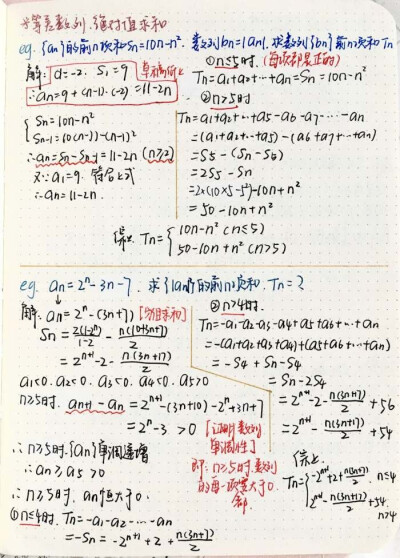 *等差数列,绝对值求和
eg. {an}的前n项和Sn=10n-n². 数列bn=|an|,求数列{bn}前n项和Tn
解: d=-2. S1=9 草稿纸上
∴an=9+(n-1)·(-2)=11-2n
{ Sn=10n-n²
Sn-1=10(n-1)-(n-1)²
∴an=Sn-Sn-1=11-2n (n≥2)
又∵a1=9. 符合上式
∴an=11-2n.
①n≤5时. (每项都是正的)
Tn=a1+a2+…+an=Sn=10n-n²
②n>5时
Tn=a1+a2+…+a5-a6-a7-…-an
=(a1+a2+…+a5)-(a6+a7+…+an)
=S5-(Sn-S5)
=2S5-Sn
=2×(10×5-5²)-10n+n²
=50-10n+n²
综上. Tn={ 10n-n² (n≤5)
50-10n+n² (n>5)
eg. an=2ⁿ-3n-7. 求{|an|}的前n项和. Tn=?
解: an=2ⁿ-(3n+7) [分组求和]
Sn=2(1-2ⁿ)/1-2 - n(10+3n+7)/2
=2ⁿ⁺¹-2-n(3n+17)/2
a1<0. a2<0. a3<0. a4<0. a5>0
n≥5时. an+1-an=2ⁿ⁺¹-(3n+10)-2ⁿ+3n+7
=2ⁿ-3>0 [证明数列单调性]
∴n≥5时.{an}单调递增
∴an≥a5>0
∴n≥5时. an恒大于0.
即: n≥5时.数列的每一项都大于0.
①n≤4时. Tn=-a1-a2-…-an
=-Sn=-2ⁿ⁺¹+2+n(3n+17)/2
②n>4时.
Tn=-a1-a2-a3-a4+a5+a6+…+an
=-(a1+a2+a3+a4)+(a5+a6+…+an)
=-S4+Sn-S4
=Sn-2S4
=2ⁿ⁺¹-2-n(3n+17)/2+56
=2ⁿ⁺¹-n(3n+17)/2+54
综上.
Tn={ -2ⁿ⁺¹+2+n(3n+17)/2. n≤4
2ⁿ⁺¹-n(3n+17)/2+54. n>4